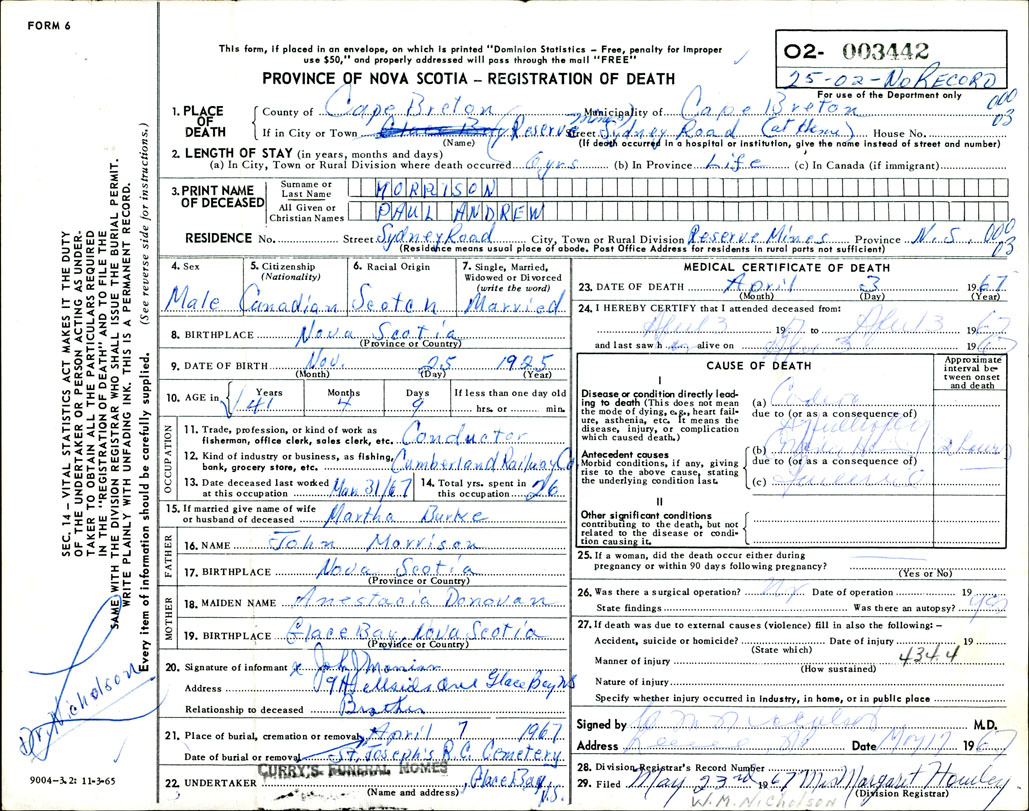 FORM 6
This form, if placed in an envelope, on which is printed "Dominion Statistics – Free, penalty for improper
use $50," and properly addressed will pass through the mail "FREE"
PROVINCE OF NOVA SCOTIA – REGISTRATION OF DEATH
02- 003442
25-02-NO RECORD
For use of the Department only
000
03
1. PLACE OF DEATH
County of Cape Breton Municipality of Cape Breton
If in City or Town Glace Bay Reserve Mines Street Sydney Road (at Home) House No.
(Name) (If death occurred in a hospital or institution, give the name instead of street and number)
2. LENGTH OF STAY (in years, months and days)
(a) In City, Town or Rural Division where death occurred 6 yrs (b) In Province Life (c) In Canada (if immigrant)
3. PRINT NAME OF DECEASED
Surname or Last Name MORRISON
All Given or Christian Names PAUL ANDREW
RESIDENCE No. Street Sydney Road City, Town or Rural Division Reserve Mines Province N.S. 000
03
(Residence means usual place of abode. Post Office Address for residents in rural parts not sufficient)
4. Sex Male
5. Citizenship (Nationality) Canadian
6. Racial Origin Scotch
7. Single, Married, Widowed or Divorced (write the word) Married
8. BIRTHPLACE Nova Scotia
(Province or Country)
9. DATE OF BIRTH Nov. 25 1925
(Month) (Day) (Year)
10. AGE in Years 41 Months 4 Days 9 If less than one day old hrs. or min.
OCCUPATION
11. Trade, profession, or kind of work as fisherman, office clerk, sales clerk, etc. Conductor
12. Kind of industry or business, as fishing, bank, grocery store, etc. Cumberland Railway Co.
13. Date deceased last worked at this occupation Mar 31/67
14. Total yrs. spent in this occupation 26
15. If married give name of wife or husband of deceased Martha Burke
FATHER
16. NAME John Morrison
17. BIRTHPLACE Nova Scotia
(Province or Country)
MOTHER
18. MAIDEN NAME Anestacia Donovan
19. BIRTHPLACE Glace Bay, Nova Scotia
(Province or Country)
20. Signature of informant x John J Morrison
Address 19 Hillside Ave Glace Bay NS
Relationship to deceased Brother
21. Place of burial, cremation or removal April 7 1967
Date of burial or removal St. Joseph's R.C. Cemetery
22. UNDERTAKER CURRY'S FUNERAL HOMES Glace Bay, N.S.
(Name and address)
MEDICAL CERTIFICATE OF DEATH
23. DATE OF DEATH April 3 1967
(Month) (Day) (Year)
24. I HEREBY CERTIFY that I attended deceased from:
April 3 19 to April 3 1967
and last saw h alive on 3 1967
CAUSE OF DEATH
Approximate interval between onset and death
I
Disease or condition directly leading to death (This does not mean the mode of dying, e.g., heart failure, asthenia, etc. It means the disease, injury, or complication which caused death.)
(a)
due to (or as a consequence of)
Antecedent causes
Morbid conditions, if any, giving rise to the above cause, stating the underlying condition last.
(b) 2 hours
due to (or as a consequence of)
(c)
II
Other significant conditions contributing to the death, but not related to the disease or condition causing it.
25. If a woman, did the death occur either during
pregnancy or within 90 days following pregnancy?
(Yes or No)
26. Was there a surgical operation? Date of operation 19
State findings Was there an autopsy? yes
27. If death was due to external causes (violence) fill in also the following: –
Accident, suicide or homicide? Date of injury 19
(State which)
Manner of injury 4344
(How sustained)
Nature of injury
Specify whether injury occurred in industry, in home, or in public place
Signed by W M Nicholson M.D.
Address Date May 17 1967
28. Division Registrar's Record Number
29. Filed May 23rd 1967 Mrs Margaret Howley
(Division Registrar)
W.M. NICHOLSON
SEC. 14 – VITAL STATISTICS ACT MAKES IT THE DUTY
OF THE UNDERTAKER OR PERSON ACTING AS UNDER-
TAKER TO OBTAIN ALL THE PARTICULARS REQUIRED
IN THE "REGISTRATION OF DEATH" AND TO FILE THE
SAME WITH THE DIVISION REGISTRAR WHO SHALL ISSUE THE BURIAL PERMIT.
WRITE PLAINLY WITH UNFADING INK. THIS IS A PERMANENT RECORD.
Every item of information should be carefully supplied. (See reverse side for instructions.)
Dr. Nicholson
9004-3.2: 11-3-65